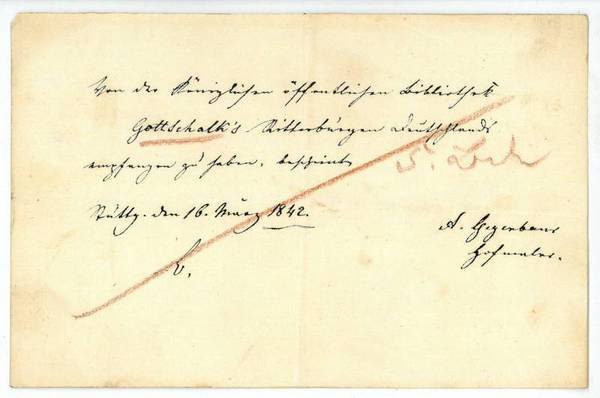 Von der Königlichen öffentlichen Bibliothek
Gottschalk's Ritterburgen Deutschlands
empfangen zu haben, bescheint
Stuttg. den 16. März 1842.
A. Gegenbaur
Hofmaler.